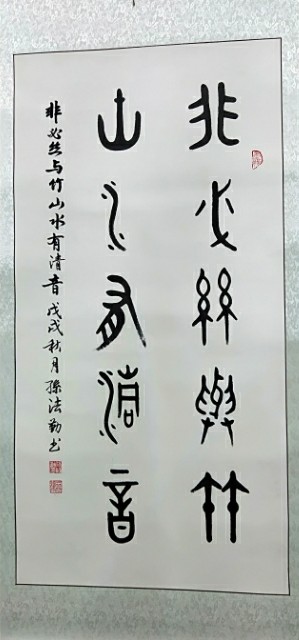 非必絲與竹
山水有清音
非必丝与竹山水有清音戊戌秋月孫法勤书